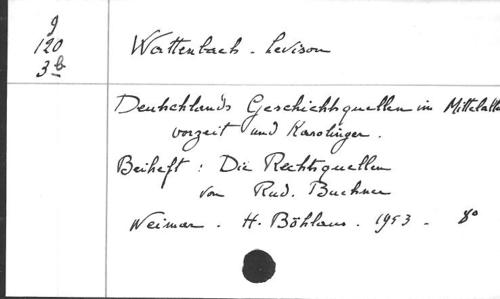 g
120
3b
Wattenbach - Levison
Deutschlands Geschichtsquellen im Mittelalte
vorzeit und Karolinger.
Beiheft : Die Rechtsquellen
von Rud. Buchner
Weimar. H. Böhlaus. 1953 - 8°